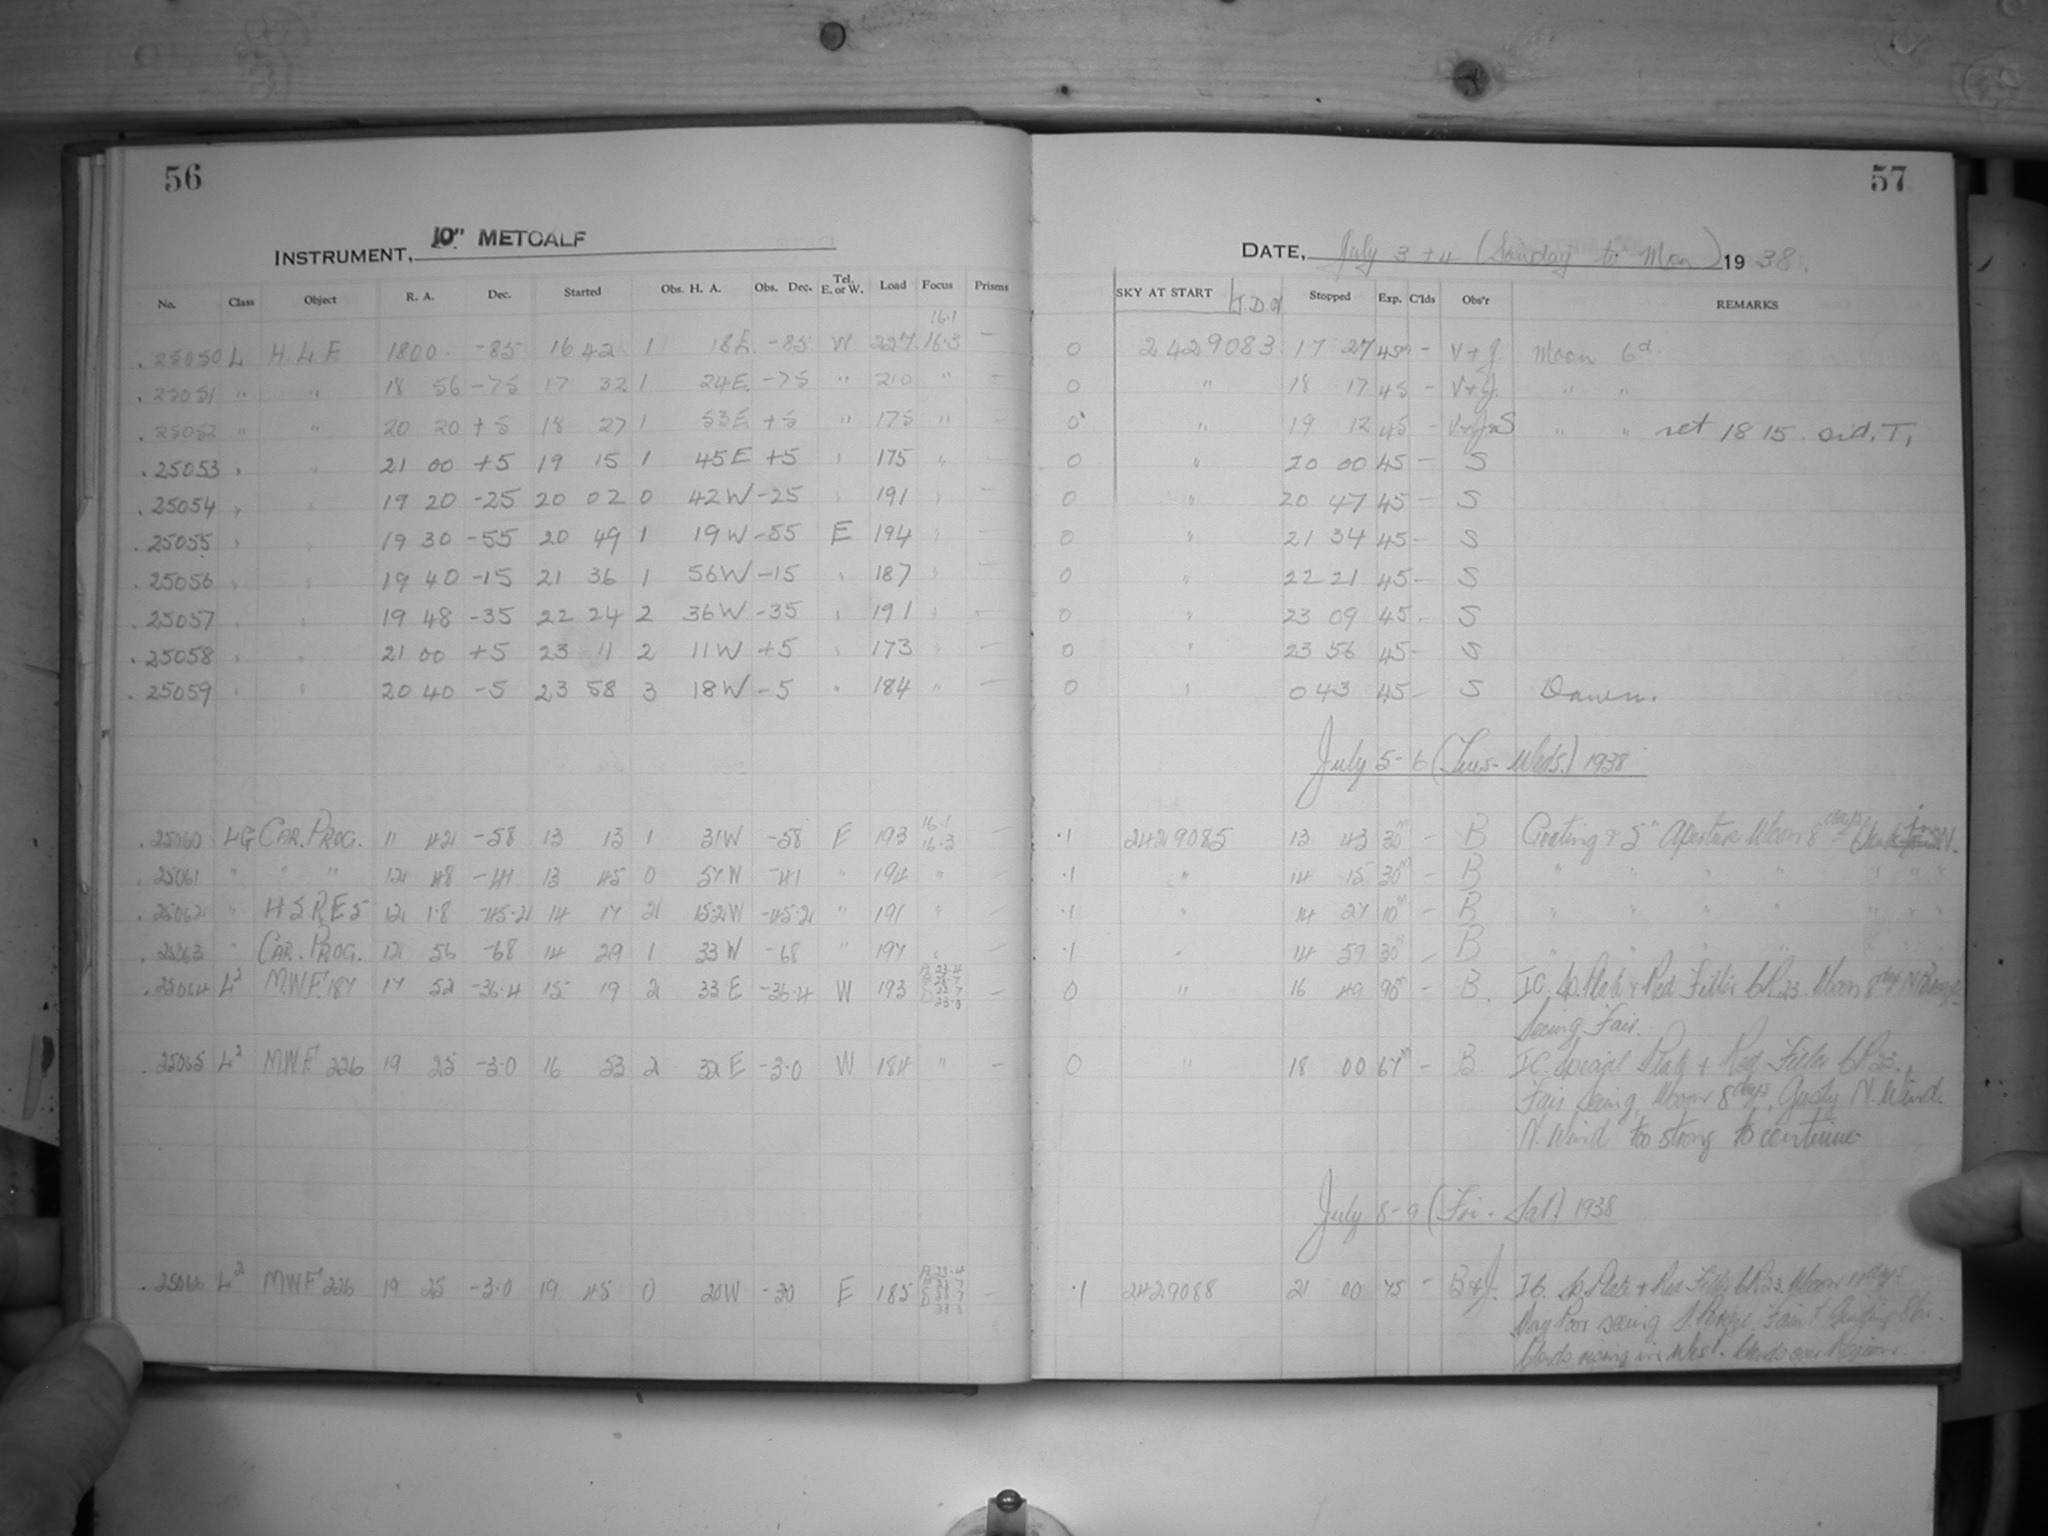 56
INSTRUMENT, 10" METCALF
No. Class Object R. A. Dec. Started Obs. H. A. Obs. Dec. Tel. E. or W. Load Focus Prisms
16.1
.25050 L H.L.F. 1800 -85 16 42 1 18E -85 W 227 16.3 —
.25051 " " 18 56 -75 17 32 1 24E -75 " 210 " —
.25052 " " 20 20 +5 18 27 1 53E +5 " 175 " —
.25053 " " 21 00 +5 19 15 1 45E +5 " 175 " —
.25054 " " 19 20 -25 20 02 0 42W -25 " 191 " —
.25055 " " 19 30 -55 20 49 1 19W -55 E 194 " —
.25056 " " 19 40 -15 21 36 1 56W -15 " 187 " —
.25057 " " 19 48 -35 22 24 2 36W -35 " 191 " —
.25058 " " 21 00 +5 23 11 2 11W +5 " 173 " —
.25059 " " 20 40 -5 23 58 3 18W -5 " 184 " —
.25060 LG CAR. PROG. 11 42 -58 13 13 1 31W -58 E 193 16.1 16.3 —
.25061 " " " 12 48 -41 13 45 0 57W -41 " 194 " —
.25062 " H S R E 5 12 1.8 -45.2 14 17 2 15.2W -45.2 " 191 " —
.25063 " CAR. PROG. 12 56 -68 14 29 1 33W -68 " 197 " —
.25064 L² MWF 187 17 52 -36.4 15 19 2 33E -36.4 W 193 —
.25065 L² MWF 226 19 25 -3.0 16 53 2 32E -3.0 W 184 " —
.25066 L² MWF 226 19 25 -3.0 19 45 0 20W -30 E 185 —
57
DATE, July 3 + 4 (Sunday to Mon) 1938.
SKY AT START J.D. of Stopped Exp. C'lds Obs'r REMARKS
0 2429083 17 27 45m - V+J. Moon 6d.
0 " 18 17 45 - V+J. " "
0 " 19 12 45 - V+J+S " " set 18 15 sid. T.
0 " 20 00 45 - S
0 " 20 47 45 - S
0 " 21 34 45 - S
0 " 22 21 45 - S
0 " 23 09 45 - S
0 " 23 56 45 - S
0 " 0 43 45 - S Dawn.
July 5-6 (Tues-Weds.) 1938
.1 2429085 13 43 30m - B Grating & 5" Aperture Moon 8 days
.1 " 14 15 30m - B " " " "
.1 " 14 27 10m - B " " " "
.1 " 14 59 30m - B " " " "
0 " 16 49 90m - B. I.C. Sp. Plate & Red Filter Moon 8 days N Breeze
Seeing Fair.
0 " 18 00 67m - B. I.C. Special Plate & Red Filter
Fair Seeing, Moon 8 days, Gusty N. Wind.
N. Wind too strong to continue
July 8-9 (Fri - Sat) 1938
.1 2429088 21 00 75 - B&J. I.C. Sp. Plate & Red Filter Moon 11 days
Poor seeing S. Breeze. Faint
Clouds rising in West. Clouds over Region.